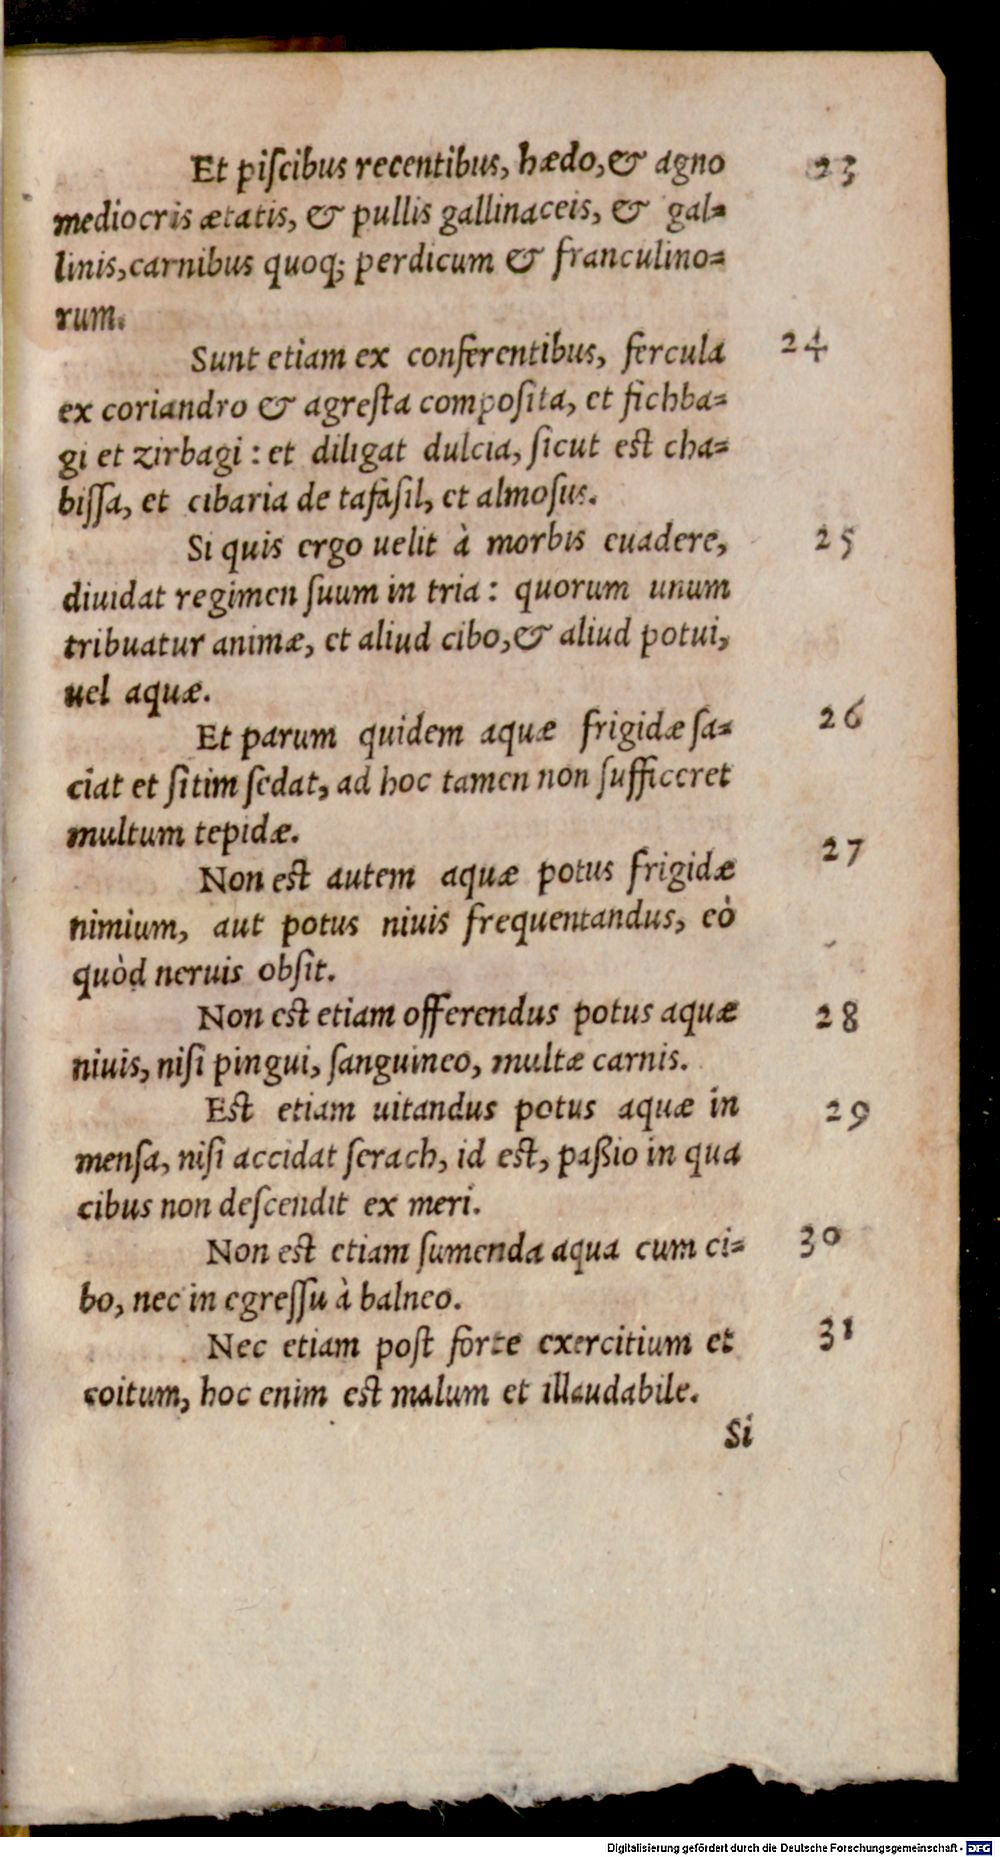 Et piſcibus recentibus, hædo, & agno 23
mediocris ætatis, & pullis gallinaceis, & gal⸗
linis, carnibus quoq; perdicum & francolino⸗
rum.
Sunt etiam ex conferentibus, fercula 24
ex coriandro & agreſta compoſita, et ſichba⸗
gi et zirbagi : et diligat dulcia, ſicut eſt cha⸗
biſſa, et cibaria de tafaſil, et almoſus.
Si quis ergo uelit à morbis euadere, 25
diuidat regimen ſuum in tria : quorum unum
tribuatur animæ, et aliud cibo, & aliud potui,
uel aquæ.
Et parum quidem aquæ frigidæ ſa⸗ 26
ciat et ſitim ſedat, ad hoc tamen non ſufficeret
multum tepidæ.
Non eſt autem aquæ potus frigidæ 27
nimium, aut potus niuis frequentandus, eò
quòd neruis obſit.
Non eſt etiam offerendus potus aquæ 28
niuis, niſi pingui, ſanguineo, multæ carnis.
Eſt etiam uitandus potus aquæ in 29
menſa, niſi accidat ſerach, id eſt, paßio in qua
cibus non deſcendit ex meri.
Non eſt etiam ſumenda aqua cum ci⸗ 30
bo, nec in egreſſu à balneo.
Nec etiam poſt forte exercitium et 31
coitum, hoc enim eſt malum et illaudabile.
Si
Digitalisierung gefördert durch die Deutsche Forschungsgemeinschaft - DFG